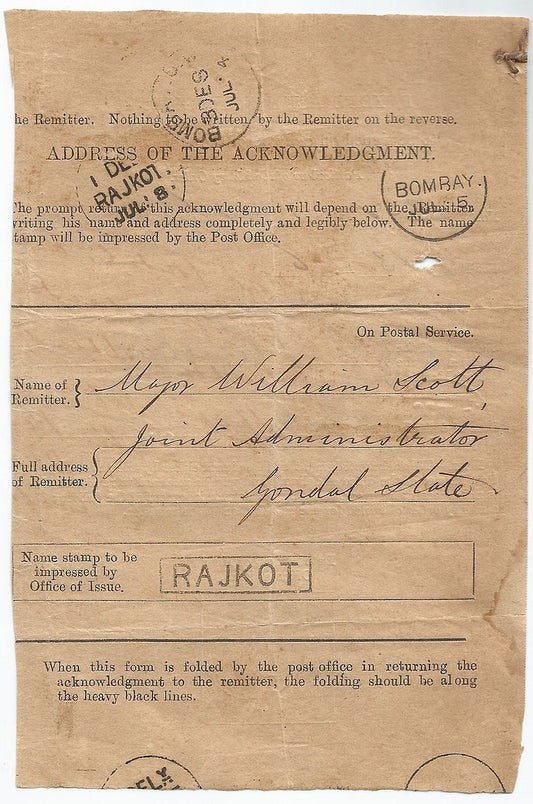 he Remitter. Nothing to be written by the Remitter on the reverse.
BOMBAY
JUL 4
ADDRESS OF THE ACKNOWLEDGMENT.
1 DEL
RAJKOT.
JUL 8.
BOMBAY.
JUL 5
The prompt return of this acknowledgment will depend on the Remitter
writing his name and address completely and legibly below. The name
stamp will be impressed by the Post Office.
On Postal Service.
Name of
Remitter.
Major William Scott,
Joint Administrator
Full address
of Remitter.
Gondal State
Name stamp to be
impressed by
Office of Issue.
RAJKOT
When this form is folded by the post office in returning the
acknowledgment to the remitter, the folding should be along
the heavy black lines.
DELY